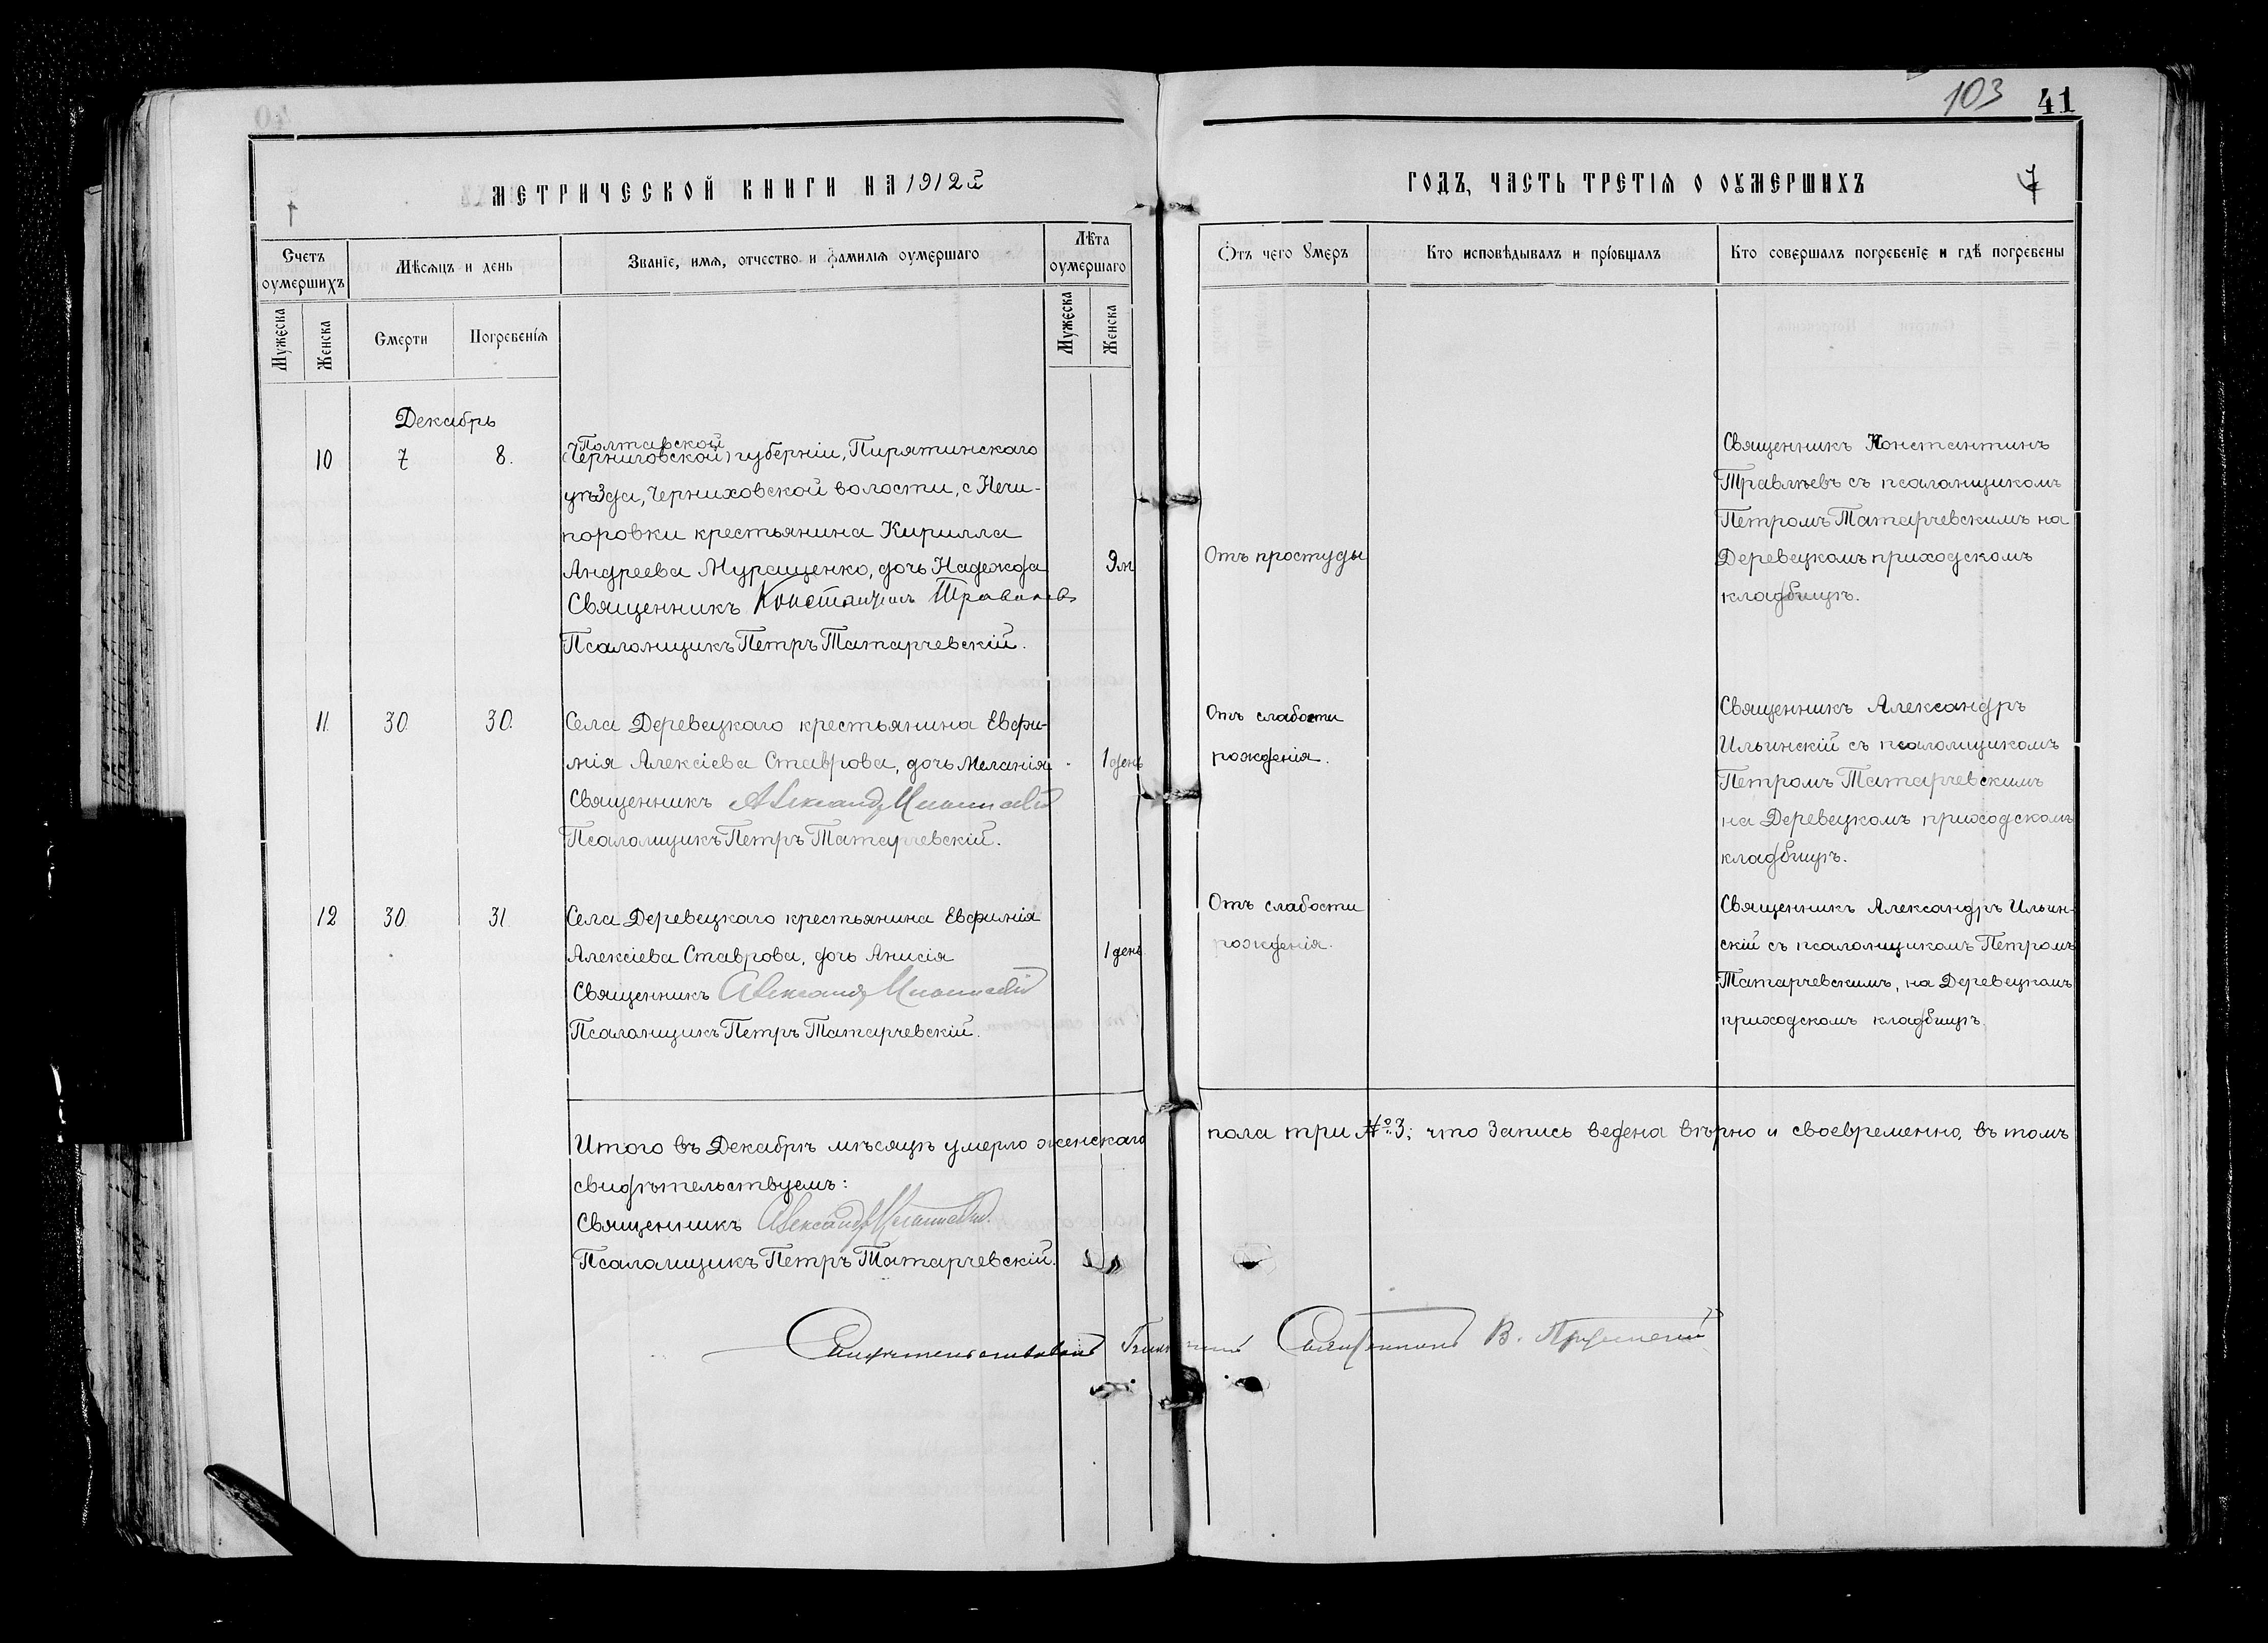 103 41
МЕТРИЧЕСКОЙ КНИГИ НА 1912й
ГОДЪ, ЧАСТЬ ТРЕТІЯ О ОУМЕРШИХЪ
Счетъ оумершихъ
Мѣсяцъ и день
Званіе, имя, отчество и фамилія оумершаго
Лѣта оумершаго
Отъ чего умеръ
Кто исповѣдывалъ и пріобщалъ
Кто совершалъ погребеніе и гдѣ погребены
Мужеска
Женска
Смерти
Погребенія
Мужеска
Женска
Декабрь
10 7 8.
Полтавской
(Черниговской) губерніи, Пирятинскаго
уѣзда, Черниховской волости, с Нечи-
поровки крестьянина Кирилла
Андреева Муращенко, дочь Надежда
Священникъ Константинъ Травлѣевъ
Псаломщикъ Петръ Татарчевскій.
9 л
Отъ простуды
Священникъ Константинъ
Травлѣевъ съ псаломщикомъ
Петромъ Татарчевскимъ на
Деревецкомъ приходскомъ
кладбищѣ.
11. 30. 30.
Села Деревецкаго крестьянина Евфи-
мія Алексіева Ставрова, дочь Меланія
Священникъ Александръ Ильинскій
Псаломщикъ Петръ Татарчевскій.
1 день
Отъ слабости
рожденія.
Священникъ Александръ
Ильинскій съ псаломщикомъ
Петромъ Татарчевскимъ
на Деревецкомъ приходскомъ
кладбищѣ.
12 30. 31.
Села Деревецкаго крестьянина Евфимія
Алексіева Ставрова, дочь Анисія
Священникъ Александръ Ильинскій
Псаломщикъ Петръ Татарчевскій.
1 день
Отъ слабости
рожденія.
Священникъ Александръ Ильин-
скій съ псаломщикомъ Петромъ
Татарчевскимъ, на Деревецкомъ
приходскомъ кладбищѣ.
Итого въ Декабрѣ мѣсяцѣ умерло женскаго пола три № 3; что запись ведена вѣрно и своевременно, въ томъ
свидѣтельствуемъ:
Священникъ Александръ Ильинскій.
Псаломщикъ Петръ Татарчевскій.
Свидѣтельствовалъ Священникъ В.